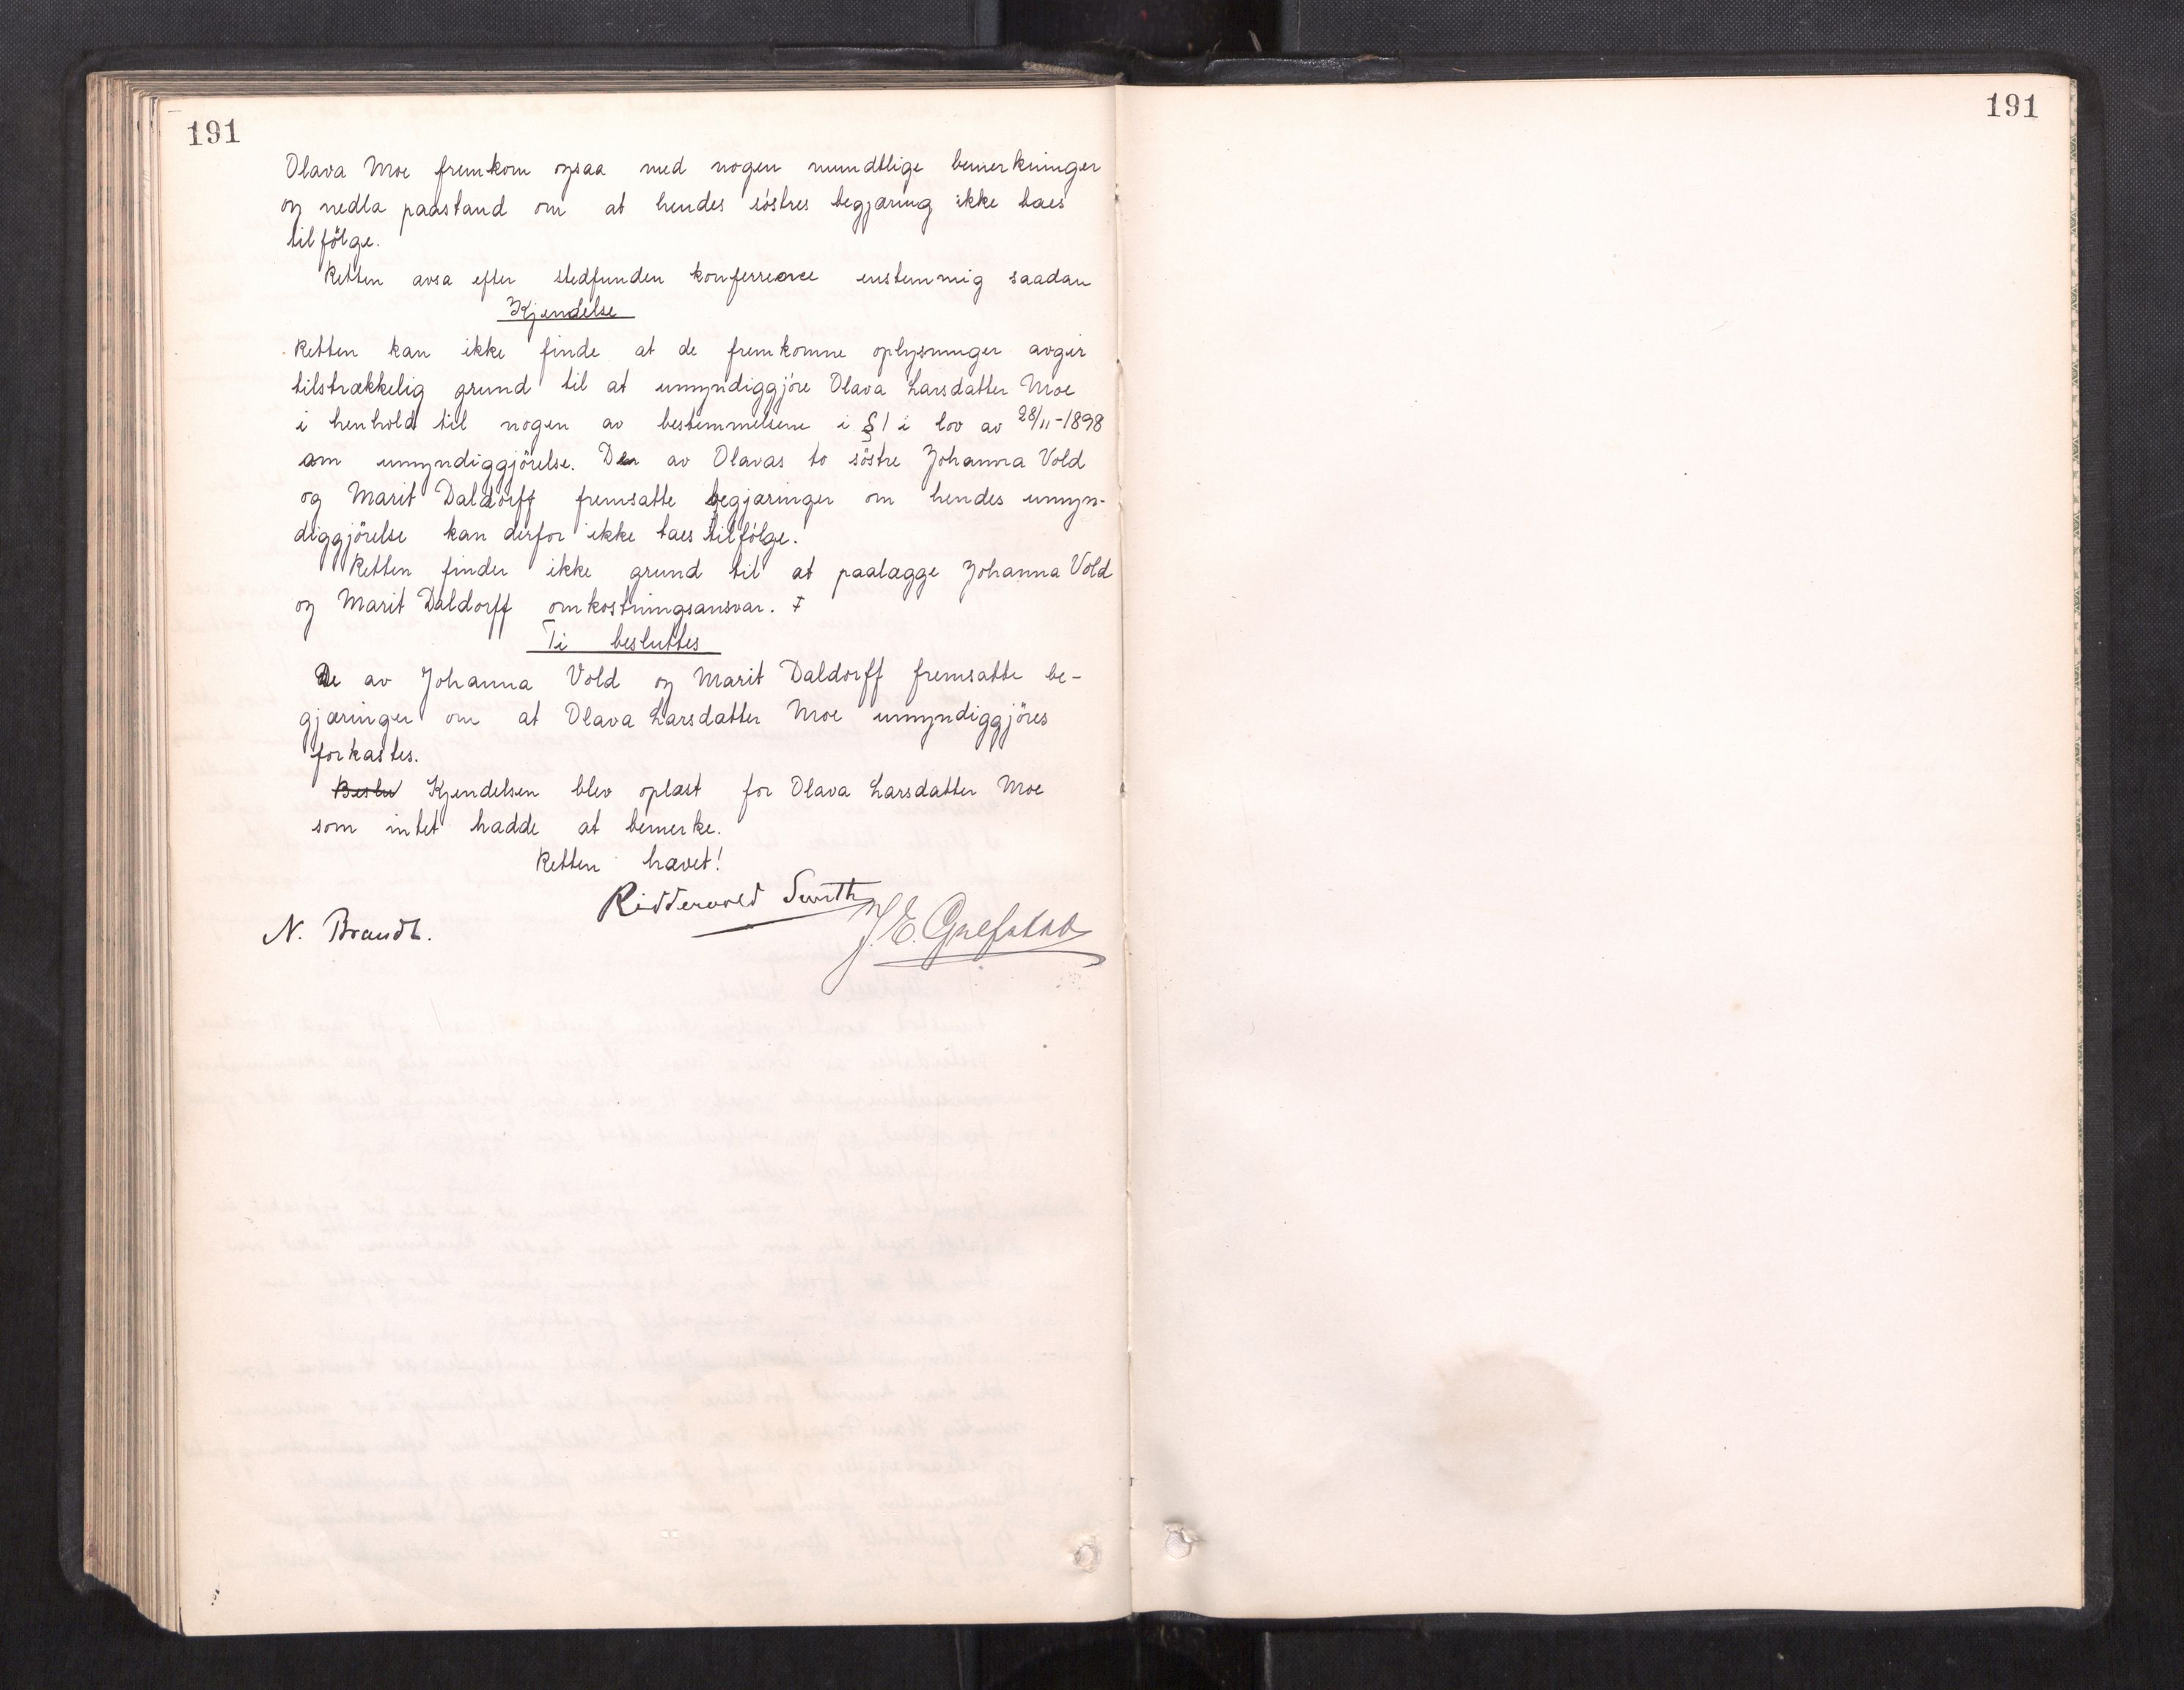 191
191
Olava Moe fremkom ogsaa med nogen mundtlige bemerkninger
og nedla paastand om at hendes söstres begjæring ikke taes
tilfölge.
Retten avsa efter stedfunden konferrence enstemmig saadan
Kjendelse
Retten kan ikke finde at de fremkomne oplysninger avgir
tilstrækkelig grund til at umyndiggjöre Olava Larsdatter Moe
i henhold til nogen av bestemmelsene i § 1 i lov av 28/11-1898
om umyndiggjörelse. De av Olavas to söstre Johanna Vold
og Marit Daldorff fremsatte begjæringer om hendes umyn-
diggjörelse kan derfor ikke taes tilfölge.
Retten finder ikke grund til at paalægge Johanna Vold
og Marit Daldorff omkostningsansvar.
Ti besluttes
De av Johanna Vold og Marit Daldorff fremsatte be-
gjæringer om at Olava Larsdatter Moe umyndiggjöres
forkastes.
Beslu Kjendelsen blev oplæst for Olava Larsdatter Moe
som intet hadde at bemerke.
Retten hævet!
Ridderwold Smith
N. Brandt.
J. E. Grefstad